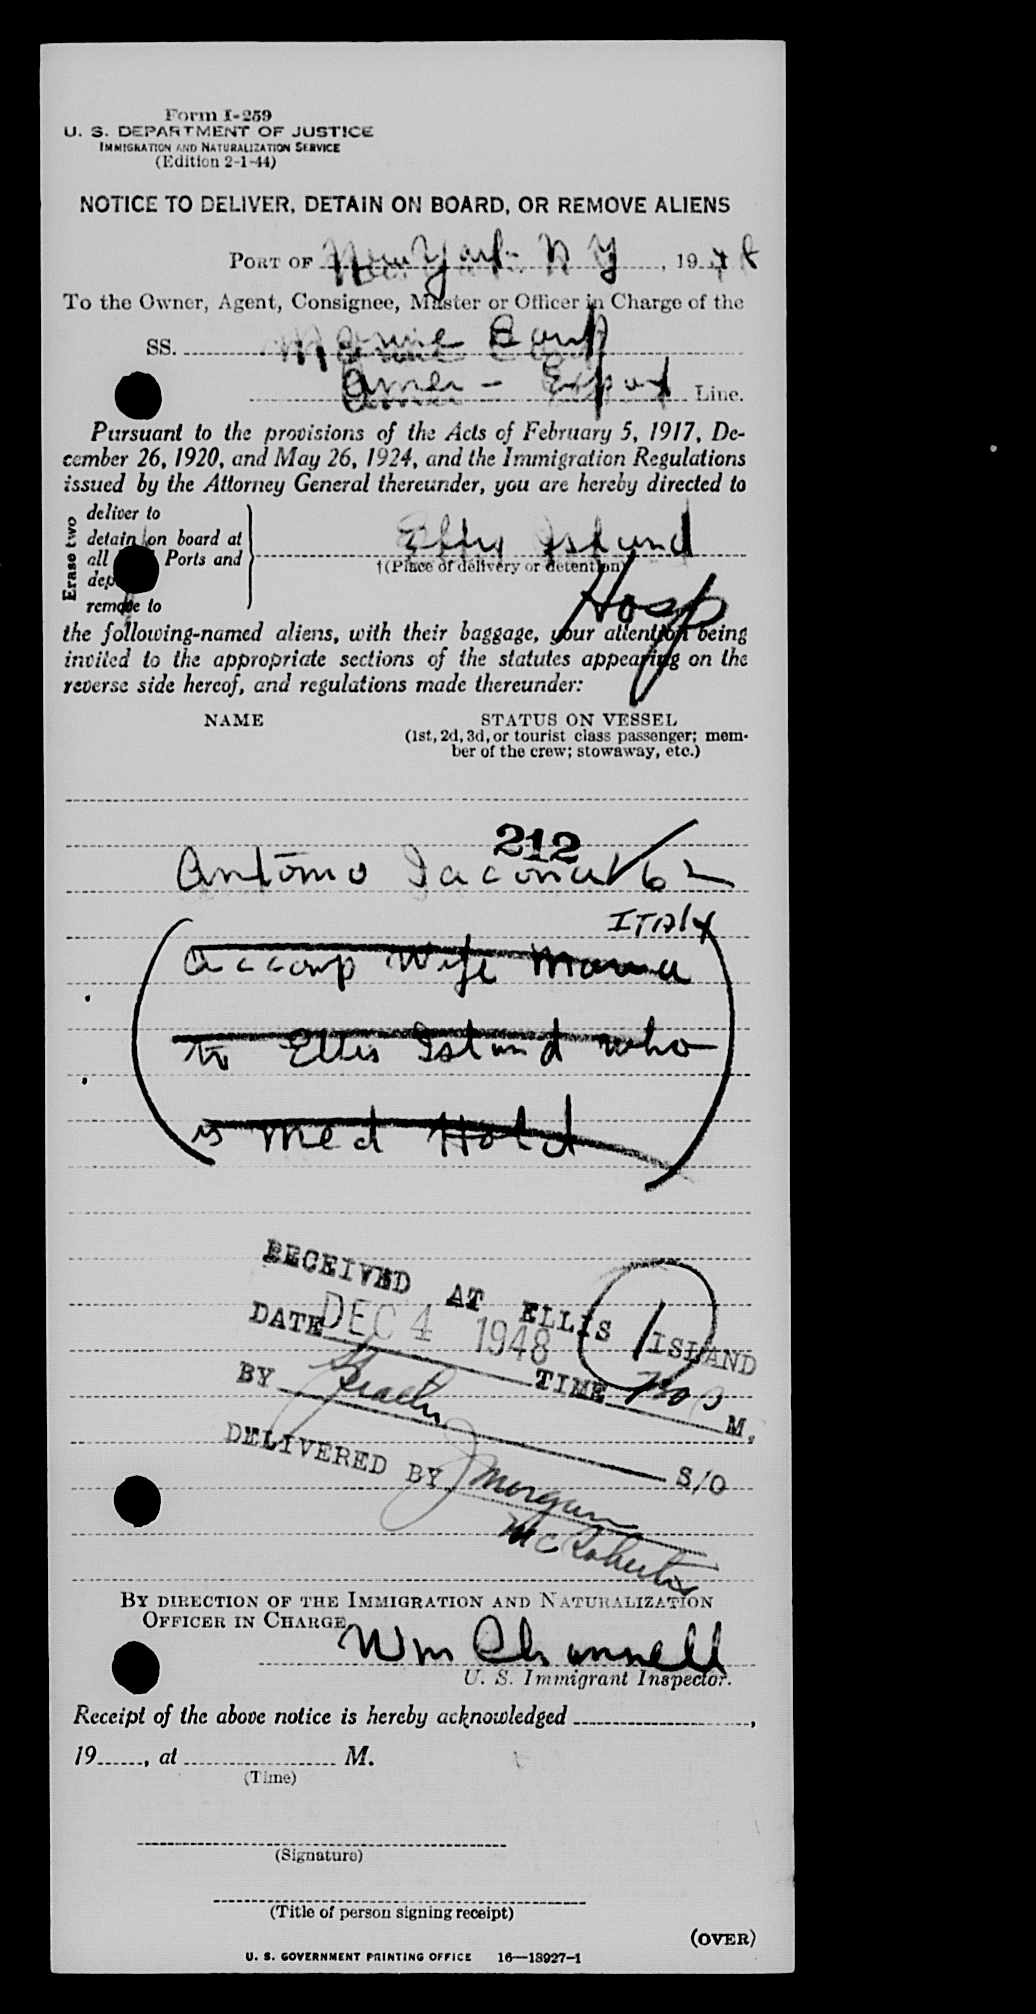 Form I-259
U. S. DEPARTMENT OF JUSTICE
IMMIGRATION AND NATURALIZATION SERVICE
(Edition 2-1-44)
NOTICE TO DELIVER, DETAIN ON BOARD, OR REMOVE ALIENS
PORT OF New York N Y, 1948
To the Owner, Agent, Consignee, Master or Officer in Charge of the
SS. Marine Carp
Amer - Export Line.
Pursuant to the provisions of the Acts of February 5, 1917, De-
cember 26, 1920, and May 26, 1924, and the Immigration Regulations
issued by the Attorney General thereunder, you are hereby directed to
Erase two
deliver to
detain on board at
all Ports and
remove to
Ellis Island
†(Place of delivery or detention)
Hosp
the following-named aliens, with their baggage, your attention being
invited to the appropriate sections of the statutes appearing on the
reverse side hereof, and regulations made thereunder:
NAME STATUS ON VESSEL
(1st, 2d, 3d, or tourist class passenger; mem-
ber of the crew; stowaway, etc.)
212
Antonio Iacona 62
ITALY
(accomp Wife Maria
to Ellis Island who
is Med Hold)
RECEIVED AT ELLIS ISLAND
1
DATE DEC 4 1948 TIME M.
BY S/O
DELIVERED BY J Morgan
McRoberts
BY DIRECTION OF THE IMMIGRATION AND NATURALIZATION
OFFICER IN CHARGE
Wm
U. S. Immigrant Inspector.
Receipt of the above notice is hereby acknowledged ,
19 , at M.
(Time)
(Signature)
(Title of person signing receipt)
(OVER)
U. S. GOVERNMENT PRINTING OFFICE 16—13927-1